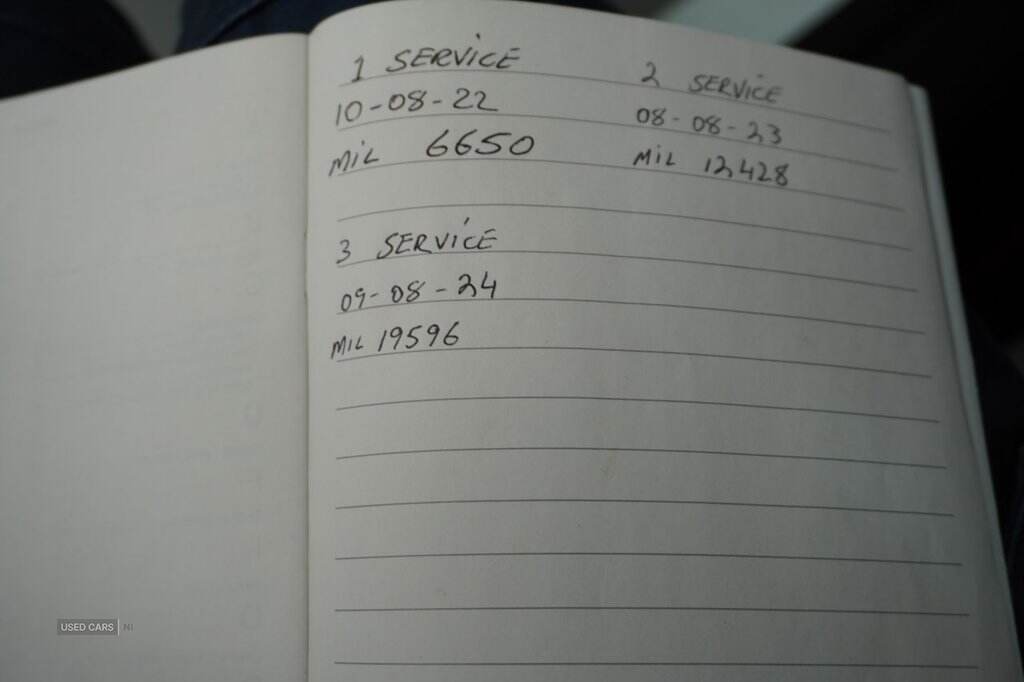 1 SERVICE
10-08-22
MIL 6650
2 SERVICE
08-08-23
MIL 12428
3 SERVICE
09-08-24
MIL 19596
USED CARS NI